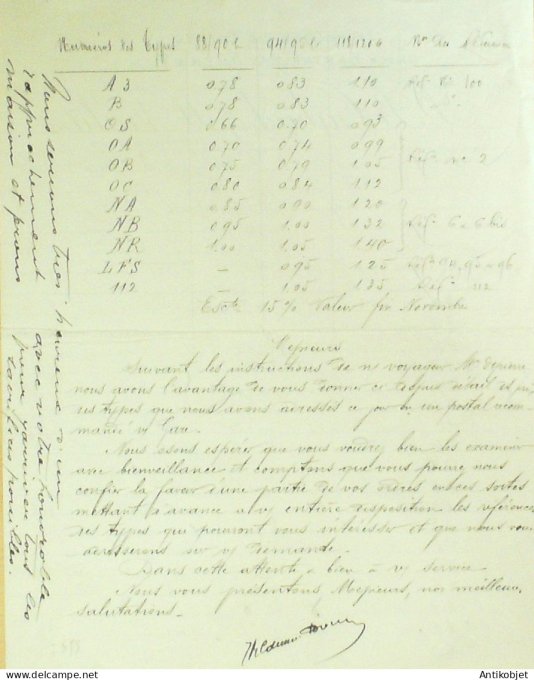 Numéros des Types 88/90 c 94/96 c 118/120 c
A 3 0.78 0.83 1.10 Réf. 100
B 0.78 0.83 1.10 "
OS 0.66 0.70 0.93
OA 0.70 0.74 0.99
OB 0.75 0.79 1.05 Réf. no 2
OC 0.80 0.84 1.12
NA 0.85 0.90 1.20
NB 0.95 1.00 1.32 Réf. 6 a 6 bis
NR 1.00 1.05 1.40
LFS — 0.95 1.25 Réf. 94, 95 a 96
112 — 1.05 1.35 Réf. 112
Escte 15 % Valeur fin Novembre
Messieurs
Suivant les instructions de n/ voyageur Mr
nous avons l'avantage de vous donner ci dessus détail et prix
des types que nous avons adressés ce jour en postal recom-
mandé v/ Gare.
Nous osons espérer que vous voudrez bien les examiner
avec bienveillance et comptons que vous pourrez nous
confier la faveur d'une partie de vos ordres en ces sortes
mettant d'avance a v/ entière disposition les références
des types qui pourront vous intéresser et que nous vous
adresserons sur v/ demande.
Dans cette attente & bien à v/ service
Nous vous présentons Messieurs, nos meilleures
salutations.
Nous serions très heureux d'un
rapprochement avec votre honorable
maison et prions pour garnir tous les
sacrifices possibles.
www.antikhof.net